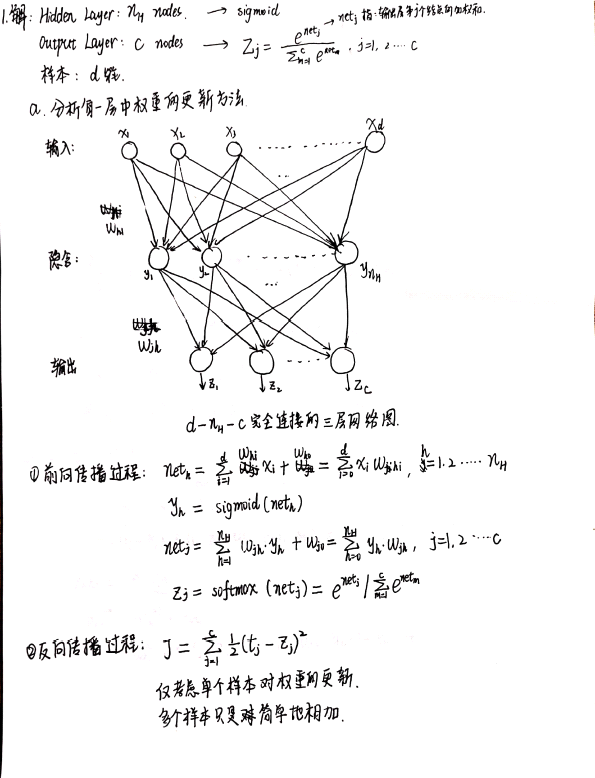 1.解: Hidden Layer: n_H nodes. → sigmoid
Output Layer: C nodes → Z_j = e^{net_j} / Σ_{m=1}^{c} e^{net_m} , j=1, 2 ···· C
→ net_j 指:输出层第j个结点的加权和.
样本: d维.
a. 分析每一层中权重的更新方法.
输入:
x_1 x_2 x_3 ········ x_d
w_hi
隐含:
y_1 y_2 ... y_{n_H}
w_jh
输出
z_1 z_2 z_C
d-n_H-c 完全连接的三层网络图.
①前向传播过程: net_h = Σ_{i=1}^{d} w_hi x_i + w_h0 = Σ_{i=0}^{d} x_i w_hi , h=1.2 ····· n_H
y_h = sigmoid(net_h)
net_j = Σ_{h=1}^{n_H} w_jh·y_h + w_j0 = Σ_{h=0}^{n_H} y_h·w_jh, j=1,2 ····c
z_j = softmax (net_j) = e^{net_j} / Σ_{m=1}^{c} e^{net_m}
②反向传播过程: J = Σ_{j=1}^{c} ½(t_j - z_j)²
仅考虑单个样本对权重的更新.
多个样本只是简单地相加.